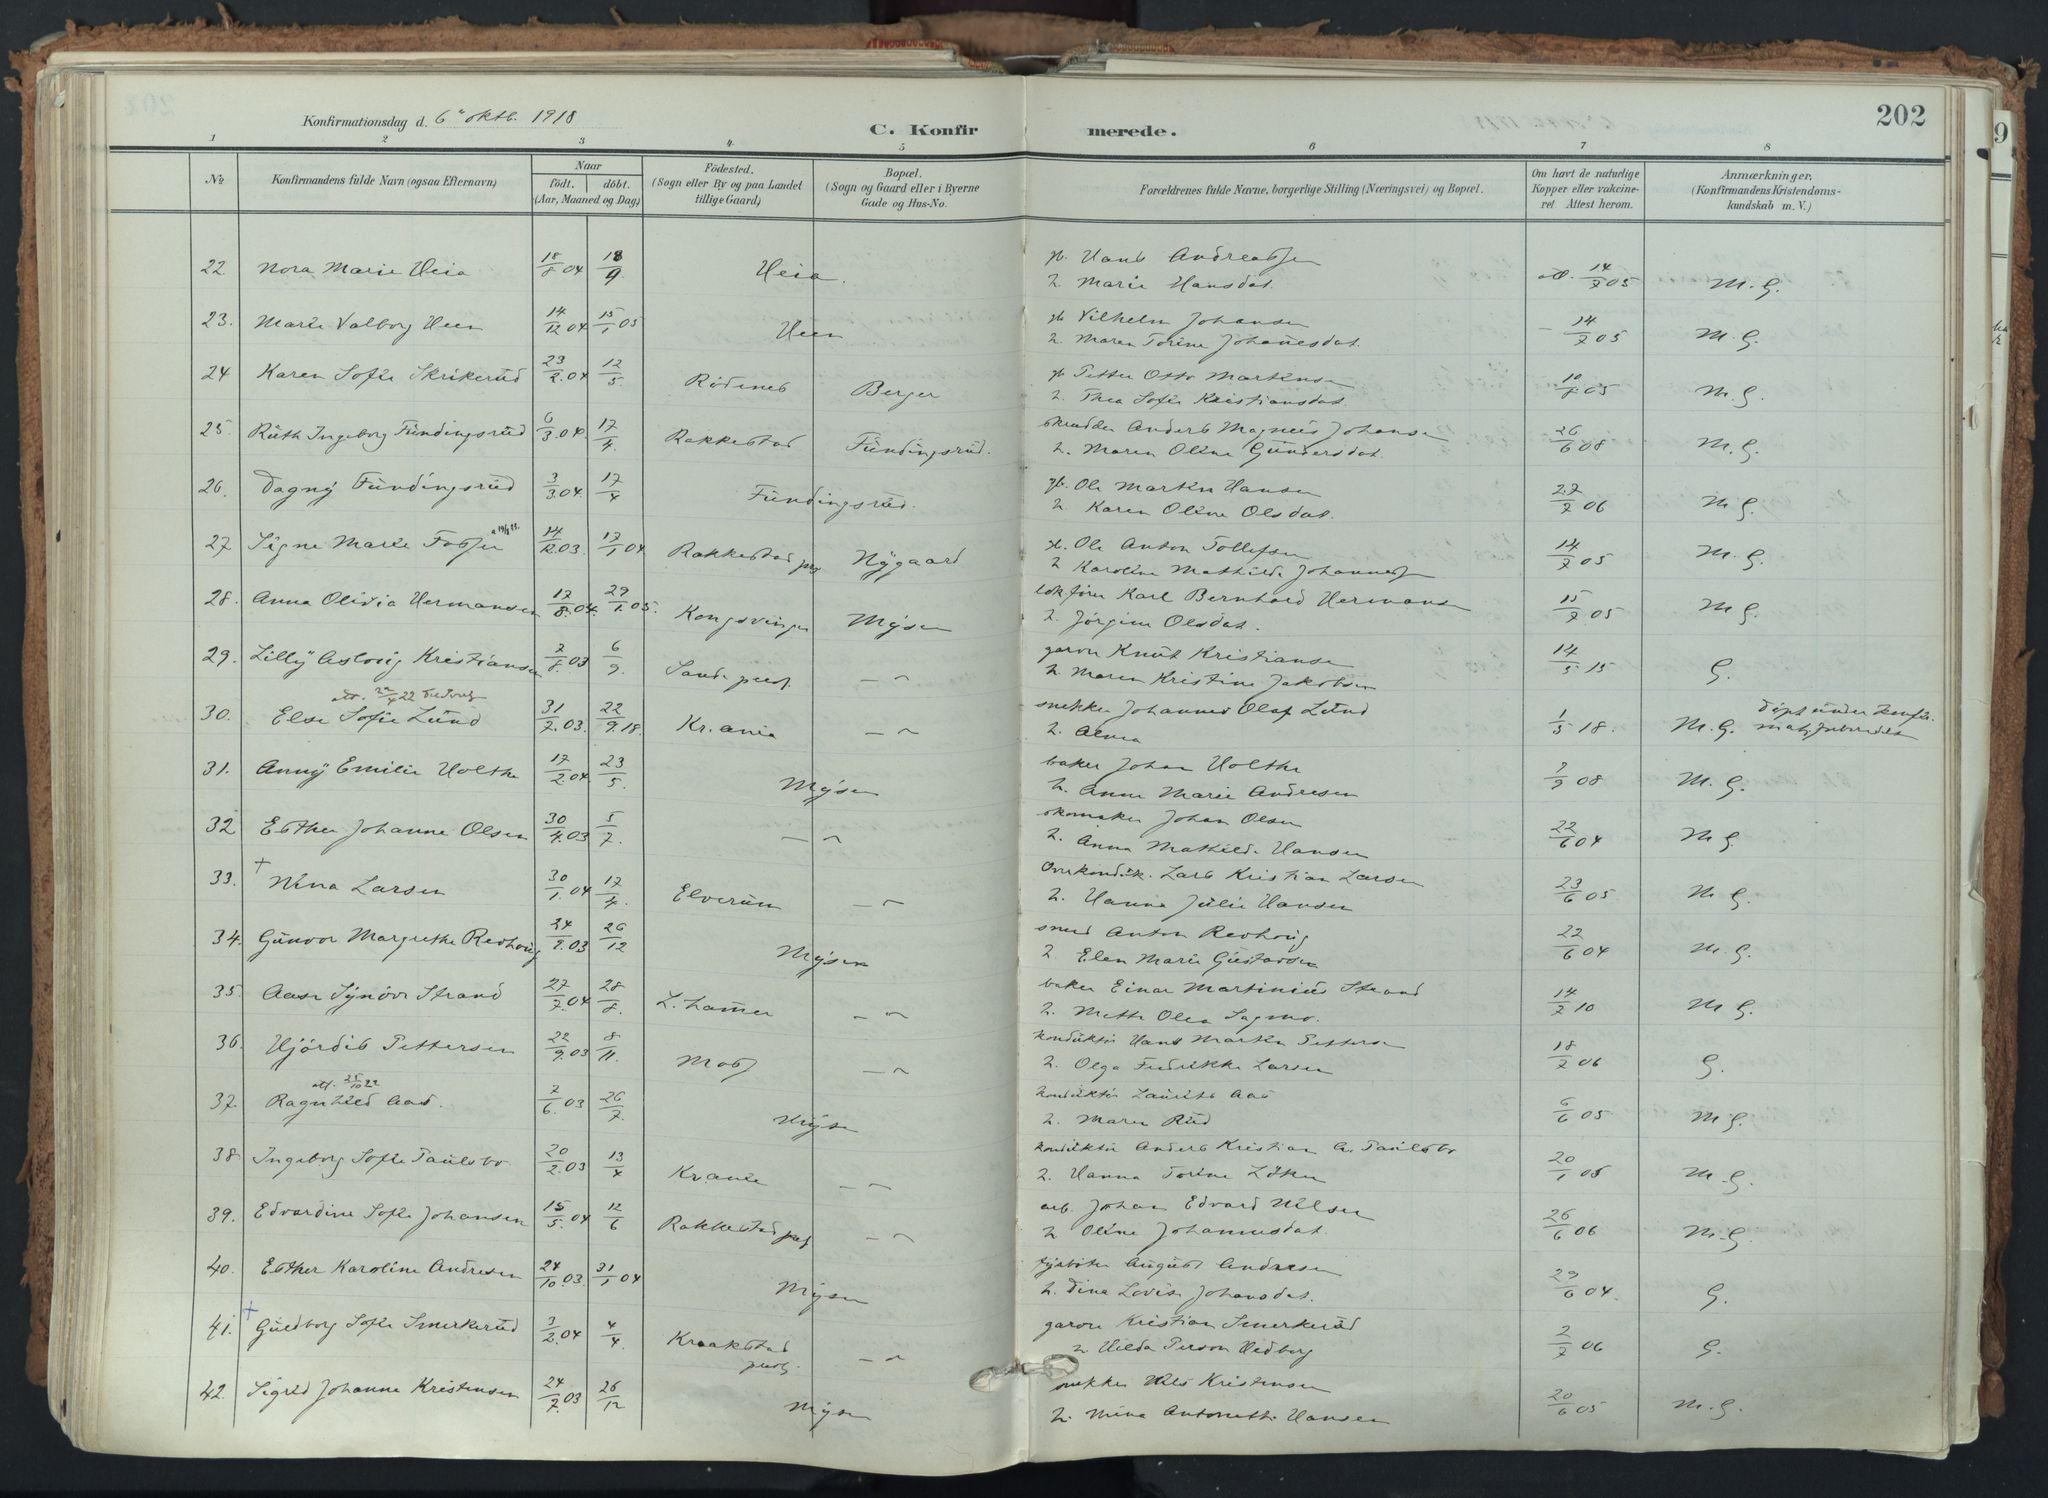 202
Konfirmationsdag d. 6' oktb. 1918
C. Konfirmerede.
1 2 3 4 5 6 7 8
No
Konfirmandens fulde Navn (ogsaa Efternavn)
Naar
födt. döbt.
(Aar, Maaned og Dag)
Födested.
(Sogn eller By og paa Landet
tillige Gaard)
Bopæl.
(Sogn og Gaard eller i Byerne
Gade og Hus-No.
Forældrenes fulde Navne, borgerlige Stilling (Næringsvei) og Bopæl.
Om havt de naturlige
Kopper eller vaccine-
ret Attest herom.
Anmærkninger.
(Konfirmandens Kristendoms-
kundskab m. V.)
22 Nora Marie Heia 18/8 04 18/9 Heia. gb. Hans Andreassen
h. Marie Hansdat. att. 14/7 05 M. G.
23. Marie Valborg Heen 14/12 04 15/1 05 Heen gb Vilhelm Johansen
h. Maren Torine Johanesdat. 14/7 05 M. G.
24 Karen Sofie Skrikerud 23/2 04 12/5 Rödenes Berger gb Petter Otto Martinsen
h. Thea Sofie Kristiansdat. 10/8 05 M. G.
25. Ruth Ingeborg Fundingsrud 6/3 04 17/4 Rakkestad Fundingsrud. skrædder Anders Magnus Johansen
h. Maren Oline Gundersdat. 26/6 08 M. G.
26. Dagny Fundingsrud 3/3 04. 17/4 Fundingsrud. gb. Ole Martin Hansen
h Karen Oline Olsdat. 27/7 06 M. G.
27 Signe Marie Fosser 14/12 03 17/1 04 Rakkestad prgj Nygaard gb. Ole Anton Tollefsen
h Karoline Mathilde Johannesd 14/7 05 M. G.
28. Anna Olivia Hermansen 17/8 04. 29/1 05. Kongsvinger Mysen lokförer Karl Bernhard Hermansen
h. Jörgine Olsdat. 15/7 05 M G.
29. Lilly Aslaug Kristiansen 7/8 03 6/9. Sande prestgj. — " — garver Knut Kristiansen
h. Maren Kristine Jakobsen 14/5 15 G.
att. 22/4 22
30. Else Sofie Lund 31/7 03. 22/9 18. Kr.ania — " — snekker Johannes Olaf Lund
h. Alma 1/5 18. M. G. döpt under konfir-
31. Anny Emilie Holthe 17/2 04 23/5. Mysen baker Johan Holthe
h. Anne Marie Andresen 7/9 08 M. G.
32 Esther Johanne Olsen 30/4 03 5/7. — " — skomaker Johan Olsen
h. Anna Mathilde Hansen 22/6 04 M G.
33. + Nina Larsen 30/1 04 17/4 Elverum — " — Overkonduk. Lars Kristian Larsen
h. Hanna Julie Hansen 23/6 05 M G.
34. Gunvor Margrethe Revhoug 24/9 03 26/12 Mysen smed Anton Revhoug
h Elen Marie Gustavsen 22/6 04 M. G.
35. Aase Synöve Strand 27/7 04 28/8. L. hammer — " — baker Einar Martinius Strand
h. Mette Olea Sagmo. 14/7 10 M G.
36. Hjördis Pettersen 22/9 03 8/11. Moss — " — konduktör Hans Martin Pettersen
h. Olga Fredrikke Larsen 18/7 06 G.
att. 25/10 22
37 Ragnhild Aas. 7/6 03 26/7. Mysen konduktör Laurits Aas
h. Maren Rud 6/6 05 M G.
38 Ingeborg Sofie Paulsbo. 20/2 03 13/4 Kr.ania — " — konduktör Anders Kristian A. Paulsbo
h. Hanna Torine Löken 20/1 05 M. G.
39. Edvardine Sofie Johansen 15/5 04 12/6 Rakkestad prestgj — " — arb. Johan Edvard Nilsen
h Oline Johannesdat. 26/6 06 M. G.
40. Esther Karoline Andresen 24/10 03. 31/1 04 Mysen fyrböter August Andresen
h. Dina Lovise Johansdat. 29/6 04. G.
41. + Guldborg Sofie Smerkerud 3/2 04 4/4. Kraakstad prestgj. — " — garver Kristian Smerkerud
h Hilda Person Hedborg 2/7 06 G.
42. Sigrid Johanne Kristensen 24/7 03 26/12 Mysen snekker Nils Kristensen
h. Mina Antonette Hansen 20/6 05 M. G.